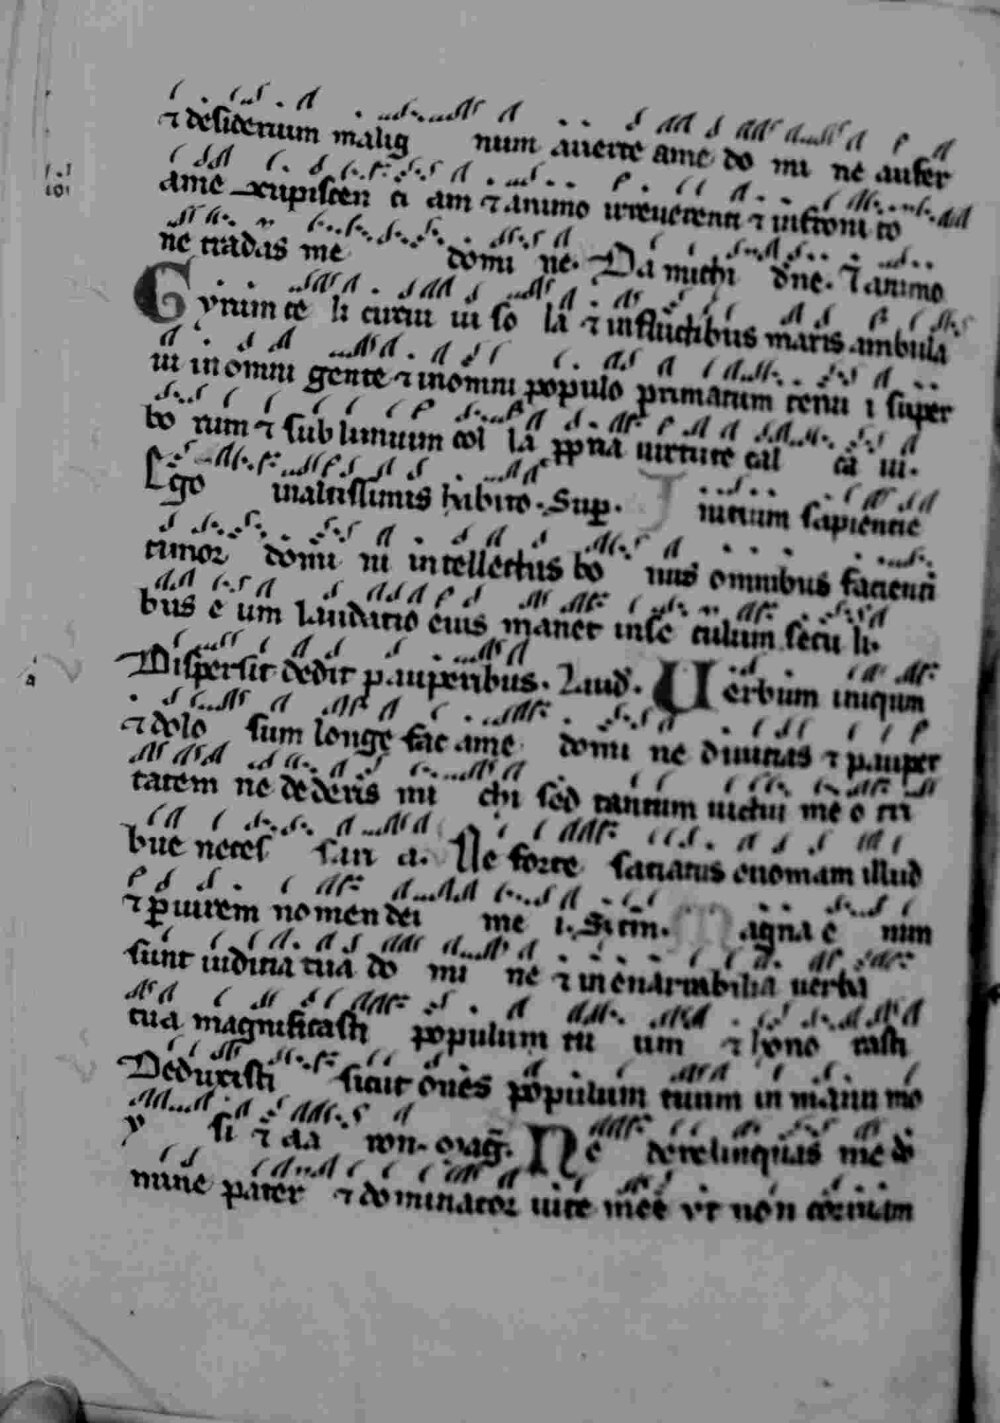 ⁊ desiderium malig num auerte ame do mi ne aufer
ame ↄcupiscen ci am ⁊ animo irreuerenti ⁊ infroni to
ne tradas me domi ne. Da michi dn̄e. ⁊ animo
Gyrum ce li circui ui so la ⁊ influctibus maris ambula
ui in omni gente ⁊ inomni populo primatum tenu i super
bo rum ⁊ sublimium col la ꝓpria uirtute cal ca ui.
Ego inaltissimis habito. Sup. Inicium sapiencie
timor domi ni intellectus bo nus omnibus facienti
bus e um laudatio eius manet inse culum secu li.
Dispersit dedit pauperibus. Laud. Uerbum iniqum
⁊ dolo sum longe fac ame domi ne diuicias ⁊ pauper
tatem ne dederis mi chi sed tantum uictui meo tri
bue neces sari a. Ne forte saciatus euomam illud
⁊ ꝑiurem nomen dei me i. Magna e nim
sunt iudicia tua do mi ne ⁊ inenarrabilia uerba
tua magnificasti populum tu um ⁊ hono rasti
Deduxisti sicut oues populum tuum in manu mo
y si ⁊ aa ron. Mag. Ne derelinquas me do
mine pater ⁊ dominator uite mee ut non corruam